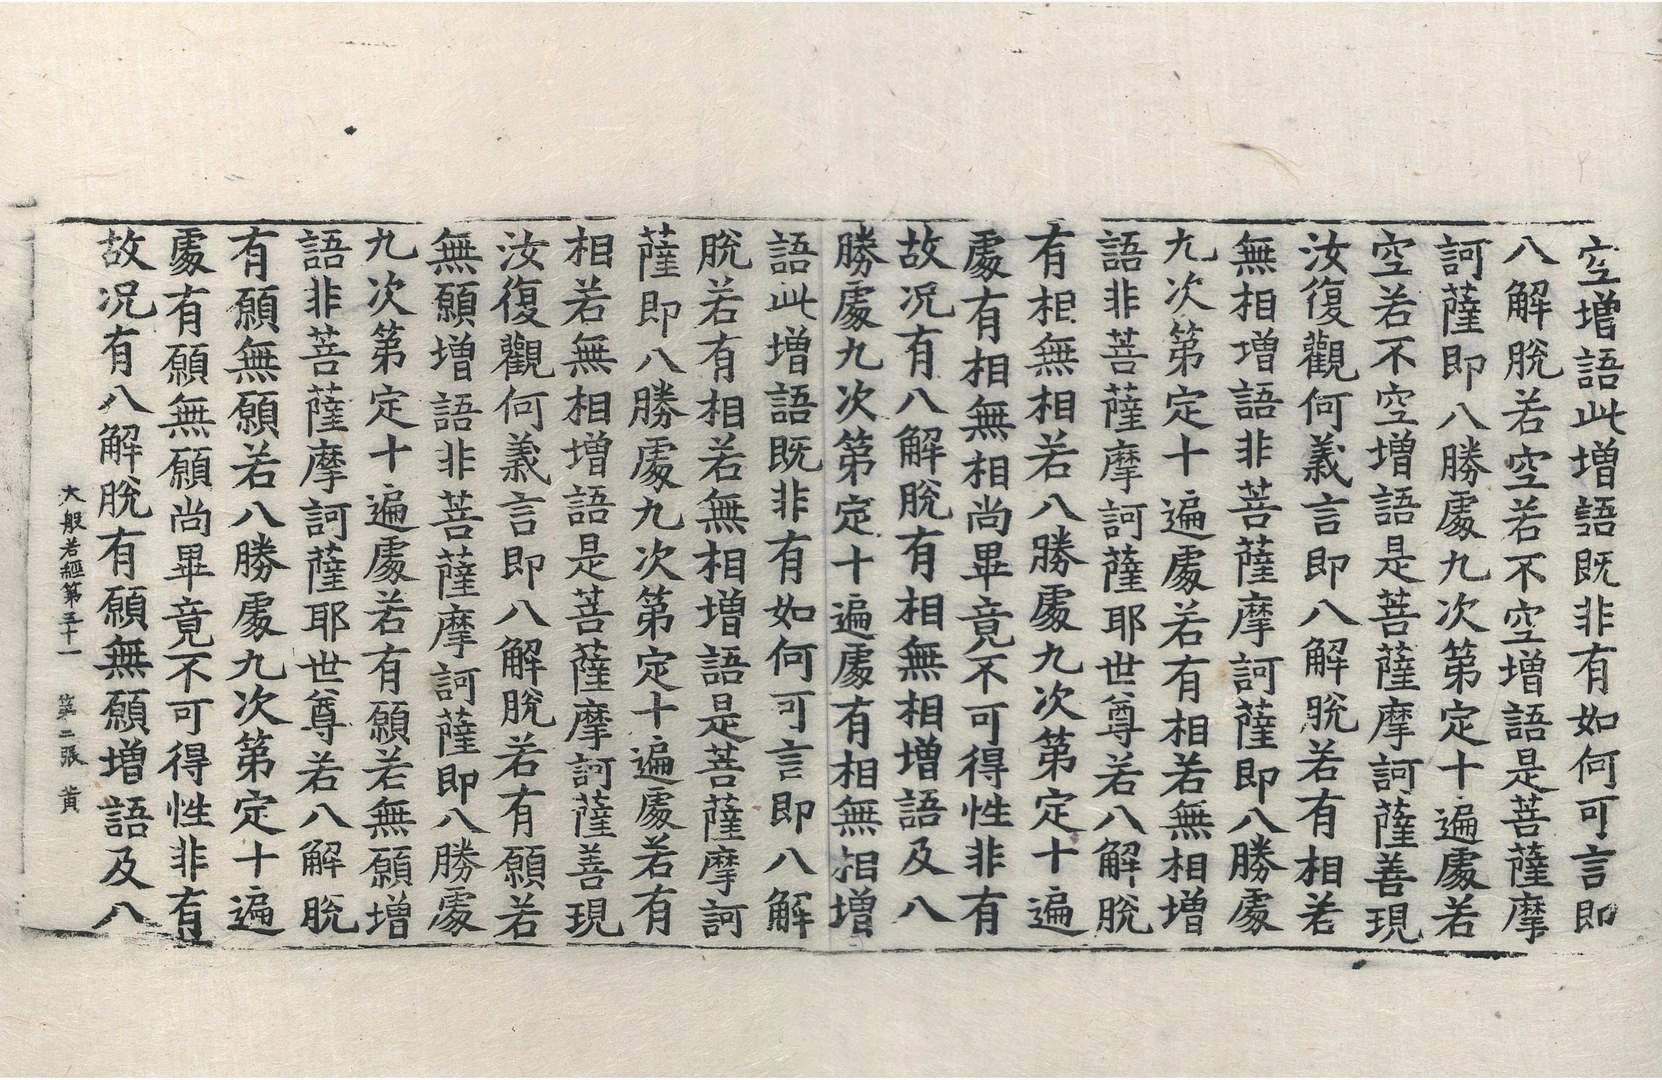 空增語此增語旣非有如何可言即
八解脫若空若不空增語是菩薩摩
訶薩即八勝處九次第定十遍處若
空若不空增語是菩薩摩訶薩善現
汝復觀何義言即八解脫若有相若
無相增語非菩薩摩訶薩即八勝處
九次第定十遍處若有相若無相增
語非菩薩摩訶薩耶世尊若八解脫
有相無相若八勝處九次第定十遍
處有相無相尚畢竟不可得性非有
故况有八解脫有相無相增語及八
勝處九次第定十遍處有相無相增
語此增語旣非有如何可言即八解
脫若有相若無相增語是菩薩摩訶
薩即八勝處九次第定十遍處若有
相若無相增語是菩薩摩訶薩善現
汝復觀何義言即八解脫若有願若
無願增語非菩薩摩訶薩即八勝處
九次第定十遍處若有願若無願增
語非菩薩摩訶薩耶世尊若八解脫
有願無願若八勝處九次第定十遍
處有願無願尚畢竟不可得性非有
故况有八解脫有願無願增語及八
大般若經第五十一 第二張 黃